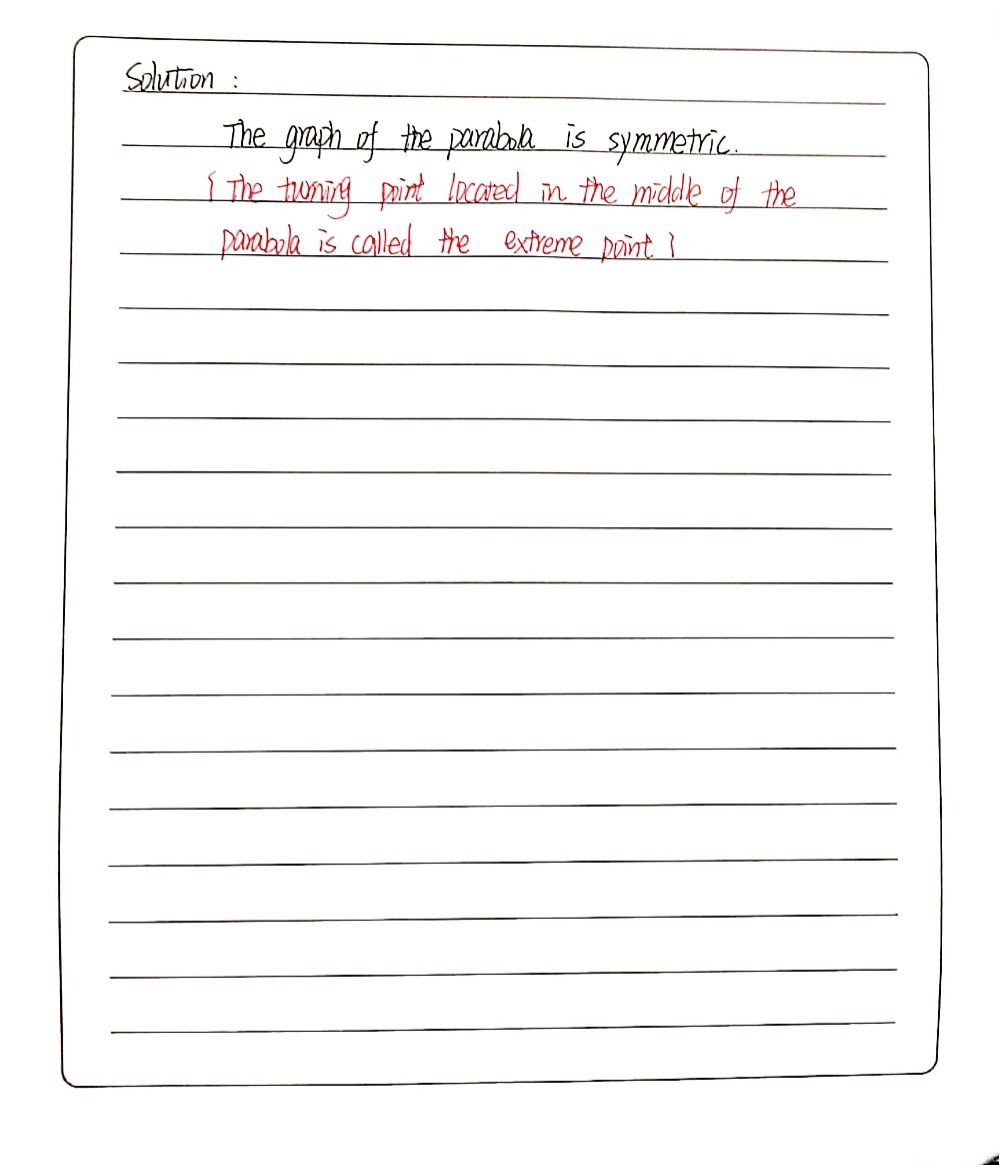 Solution :
The graph of the parabola is symmetric.
{ The turning point located in the middle of the
parabola is called the extreme point }